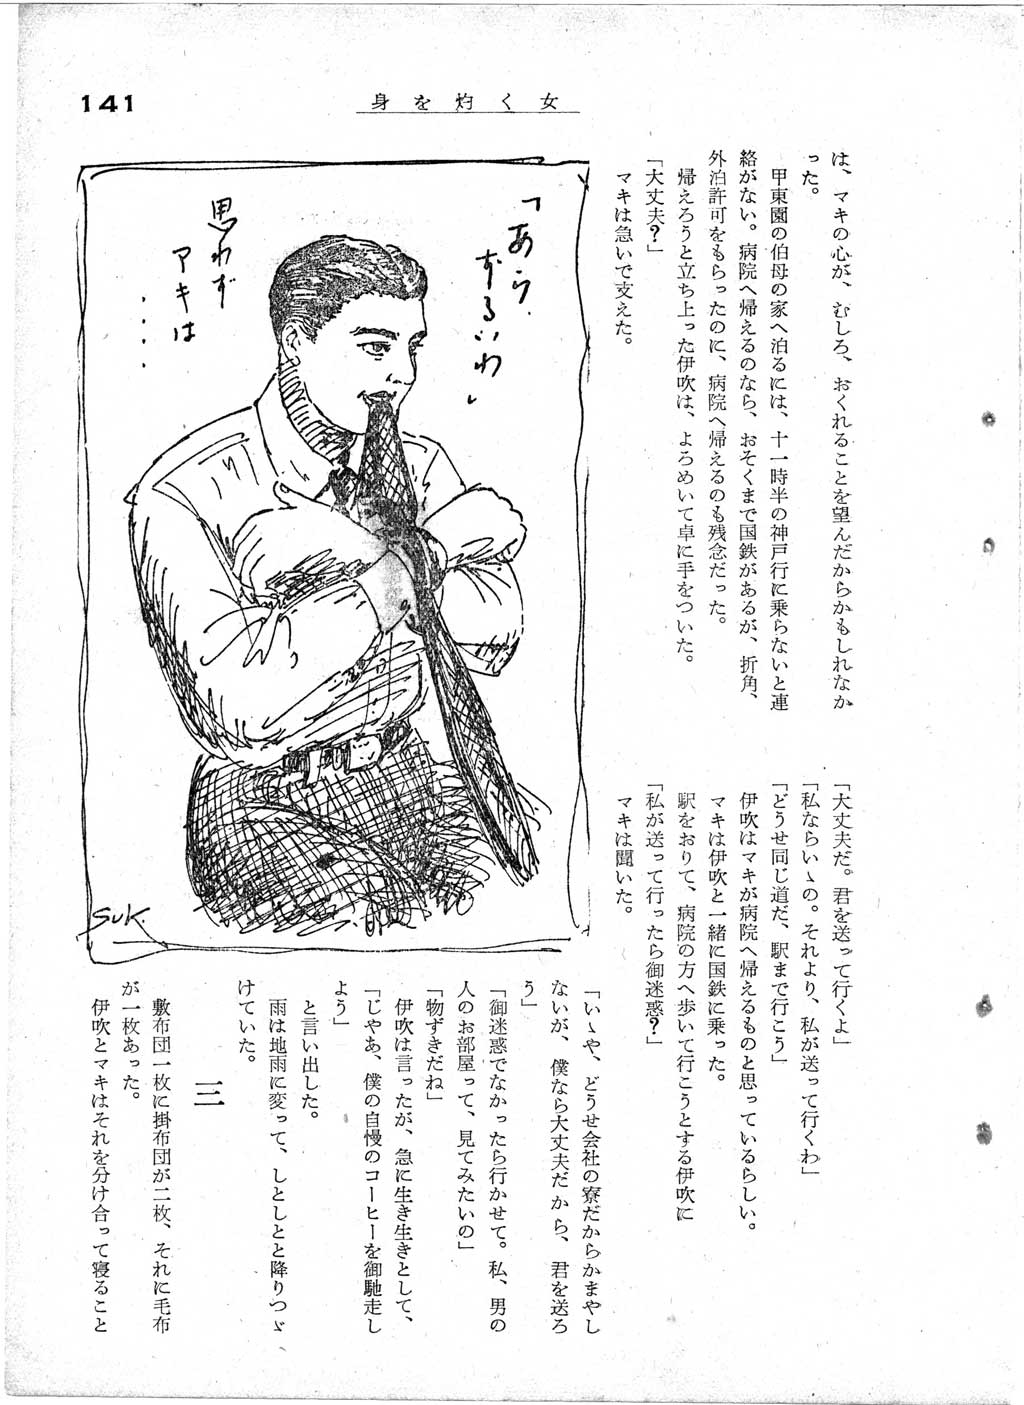 141
身を灼く女
は、マキの心が、むしろ、おくれることを望んだからかもしれなか
った。
甲東園の伯母の家へ泊るには、十一時半の神戸行に乗らないと連
絡がない。病院へ帰えるのなら、おそくまで国鉄があるが、折角、
外泊許可をもらったのに、病院へ帰えるのも残念だった。
帰えろうと立ち上った伊吹は、よろめいて卓に手をついた。
「大丈夫?」
マキは急いで支えた。
「大丈夫だ。君を送って行くよ」
「私ならいゝの。それより、私が送って行くわ」
「どうせ同じ道だ、駅まで行こう」
伊吹はマキが病院へ帰えるものと思っているらしい。
マキは伊吹と一緒に国鉄に乗った。
駅をおりて、病院の方へ歩いて行こうとする伊吹に
「私が送って行ったら御迷惑?」
マキは聞いた。
「あら、
ずるいわ」
思わず
アキは
・・・・
SUK.
「いゝや、どうせ会社の寮だからかまやし
ないが、僕なら大丈夫だから、君を送ろ
う」
「御迷惑でなかったら行かせて。私、男の
人のお部屋って、見てみたいの」
「物ずきだね」
伊吹は言ったが、急に生き生きとして、
「じゃあ、僕の自慢のコーヒーを御馳走し
よう」
と言い出した。
雨は地雨に変って、しとしとと降りつゞ
けていた。
三
敷布団一枚に掛布団が二枚、それに毛布
が一枚あった。
伊吹とマキはそれを分け合って寝ること